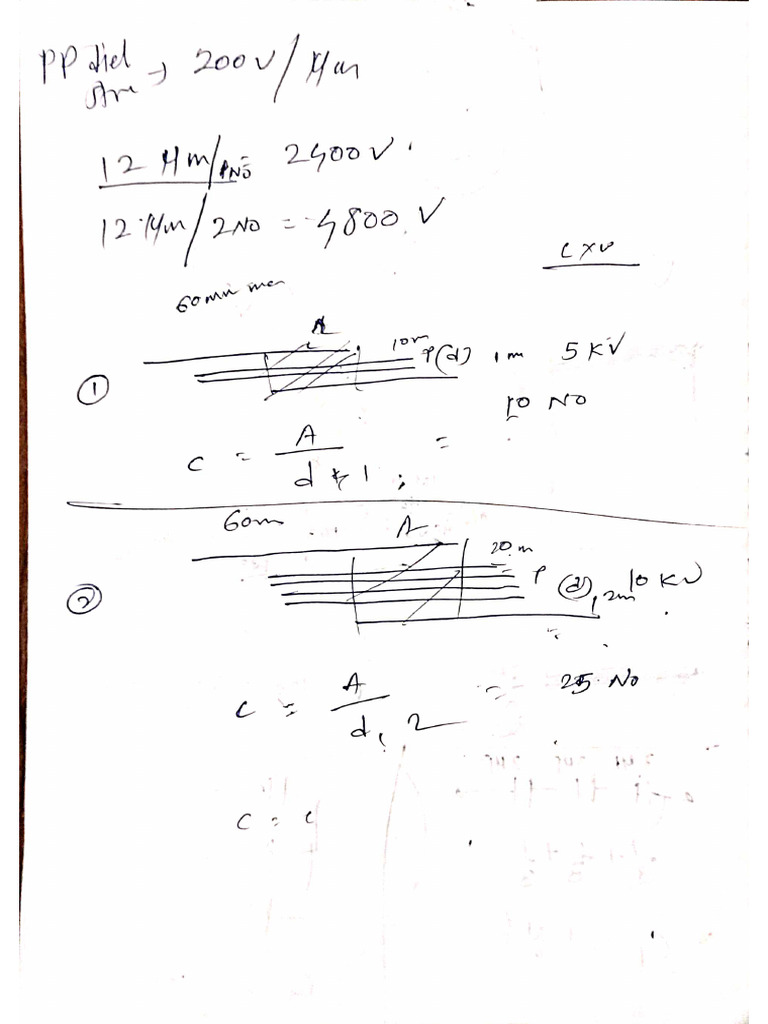 PP diel → 200 V/μm
12 μm/1NO = 2400 V.
12 μm/2NO = 4800 V
C x V
60mm
A
10m P(d) 1m 5 KV
①
10 NO
C = A / d × 1 ; =
60m A
20 m
② P (d), 2m 10 KV
C = A / d, 2 = 25 No
C = C